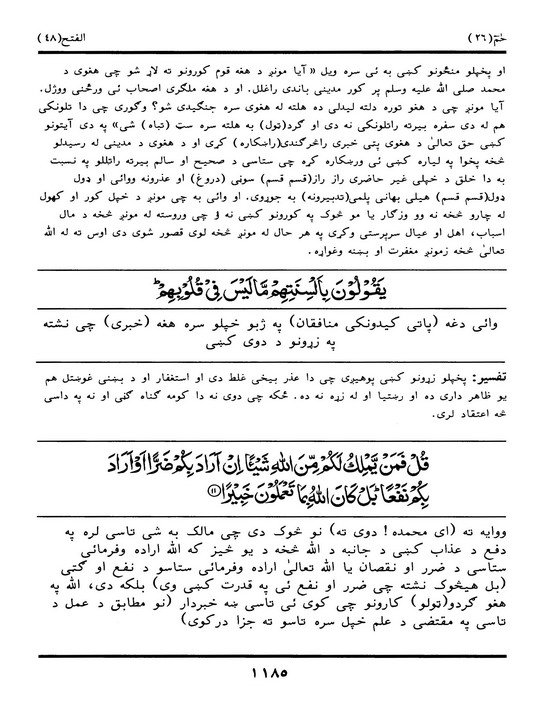 حٰمٓ(۲٦) الفتح(٤٨)
او پخپلو منځونو کښي به ئې سره ويل « آيا مونږ د هغه قوم کورونو ته لاړ شو چي هغوی د
محمد صلی الله عليه وسلم پر کور مدينې باندي راغلل. او د هغه ملګري اصحاب ئې ورځنې ووژل.
آيا مونږ چي د هغو توره دلته ليدلې ده هلته له هغوی سره جنګيدی شو؟ وګوري چي دا تلونکي
هم له دې سفره بيرته راتلونکي نه دي او ګرد(ټول) به هلته سره ست (تباه) شي» په دې آيتونو
کښي حق تعالیٰ د هغوی پټي خبري راڅرګندي(راښکاره) کړې او د هغوی د مدينې له رسيدلو
څخه پخوا په لياره کښي ئې ورښکاره کړه چي ستاسې د صحيح او سالم بيرته راتللو په نسبت
به دا خلق د خپلې غير حاضرۍ راز راز(قسم قسم) سوټي (دروغ) او عذرونه ووائي او ډول
ډول(قسم قسم) هيلې بهانې پلمې(تدبيرونه) به جوړوي. او وائي به چي مونږ د خپل کور او کهول
له چارو څخه نه وو وزګار يا مو څوک په کورونو کښي نه ؤ چي وروسته له مونږ څخه د مال
اسباب، اهل او عيال سرپرستي وکړي په هر حال له مونږ څخه لوی قصور شوی دی اوس ته له الله
تعالیٰ څخه زمونږ مغفرت او بښنه وغواړه.
يَقُوْلُوْنَ بِاَلْسِنَتِهِمْ مَّا لَيْسَ فِىْ قُلُوْبِهِمْ ؕ
وائي دغه (پاتې کيدونکي منافقان) په ژبو خپلو سره هغه (خبري) چي نشته
په زړونو د دوی کښي
تفسير: پخپلو زړونو کښي پوهيږي چي دا عذر بيخي غلط دی او استغفار او د بښني غوښتل هم
يو ظاهر داري ده او رښتيا او له زړه نه ده. ځکه چي دوی نه دا کومه ګناه ګڼي او نه په داسې
څه اعتقاد لري.
قُلْ فَمَنْ يَّمْلِكُ لَكُمْ مِّنَ اللهِ شَيْئًا اِنْ اَرَادَ بِكُمْ ضَرًّا اَوْ اَرَادَ
بِكُمْ نَفْعًا ؕ بَلْ كَانَ اللهُ بِمَا تَعْمَلُوْنَ خَبِيْرًا ⑪
ووايه ته (ای محمده! دوی ته) نو څوک دی چي مالک به شي تاسې لره په
دفع د عذاب کښي د جانبه د الله څخه د يو څيز که الله اراده وفرمائي
ستاسې د ضرر او نقصان يا الله تعالیٰ اراده وفرمائي ستاسو د نفع او ګټي
(بل هيڅوک نشته چي ضرر او نفع ئې په قدرت کښي وي) بلکه دی، الله په
هغو ګردو(ټولو) کارونو چي کوی ئې تاسې ښه خبردار (نو مطابق د عمل د
تاسې په مقتضی د علم خپل سره تاسو ته جزا درکوي)
١١٨٥